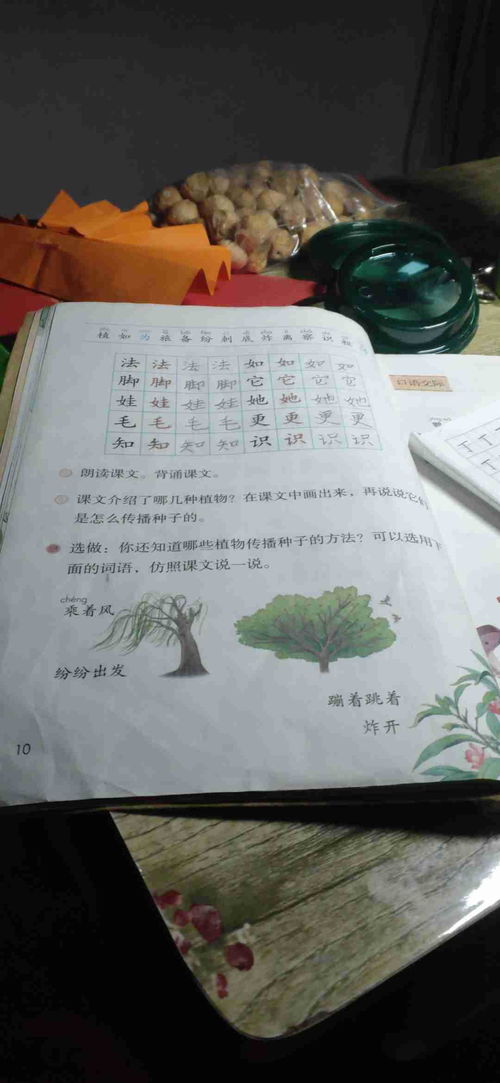 植 如 为 旅 备 纷 刺 底 炸 离 察 识 粗
法 法 法 法 如 如 如 如
脚 脚 脚 脚 它 它 它 它
娃 娃 娃 娃 她 她 她 她
毛 毛 毛 毛 更 更 更 更
知 知 知 知 识 识 识 识
口语交际
朗读课文。背诵课文。
课文介绍了哪几种植物？在课文中画出来，再说说它们
是怎么传播种子的。
选做：你还知道哪些植物传播种子的方法？可以选用下
面的词语，仿照课文说一说。
chéng
乘着风
纷纷出发
蹦着跳着
炸开
10